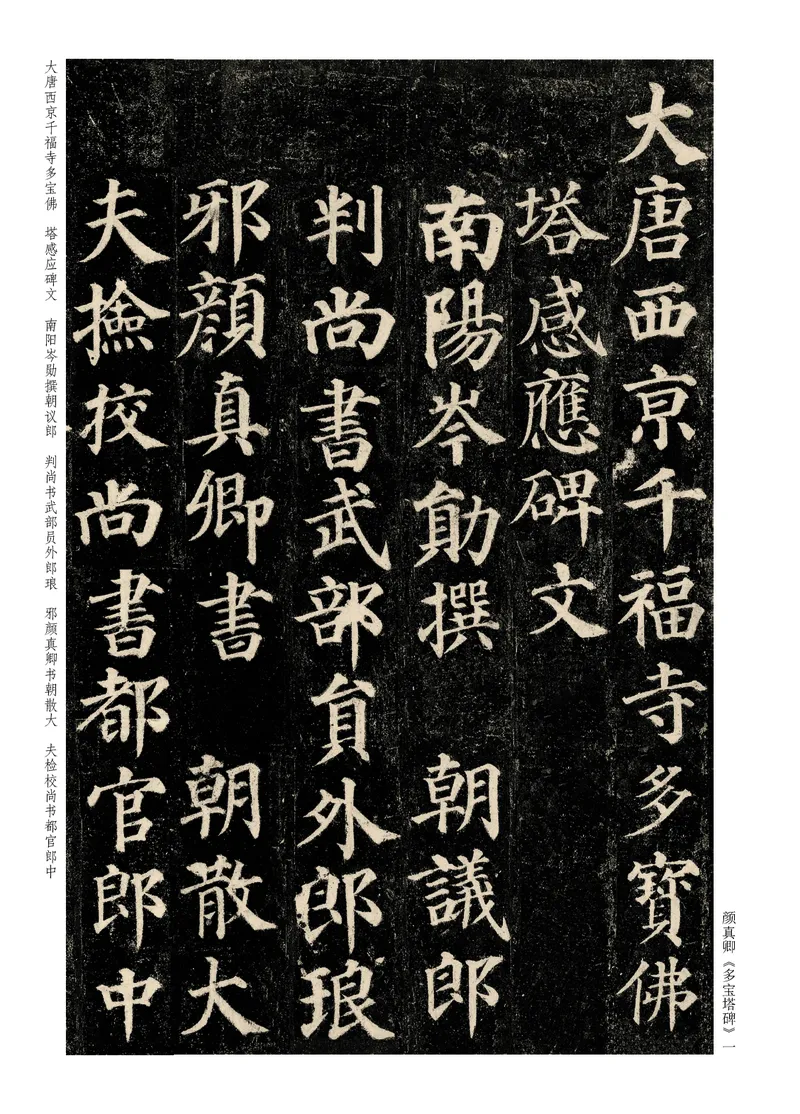 大唐西京千福寺多寶佛
塔感應碑文
南陽岑勛撰 朝議郎
判尚書武部員外郎琅
邪顏真卿書 朝散大
夫撿校尚書都官郎中
大唐西京千福寺多宝佛 塔感应碑文 南阳岑勋撰朝议郎 判尚书武部员外郎琅 邪颜真卿书朝散大 夫检校尚书都官郎中
颜真卿《多宝塔碑》一